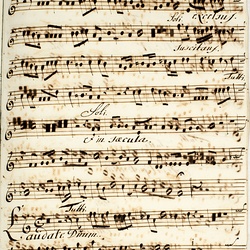 Soli excelsus.
Suscitans.
Tutti
Soli
et in sæcula.
Tutti
Laudate Dnum